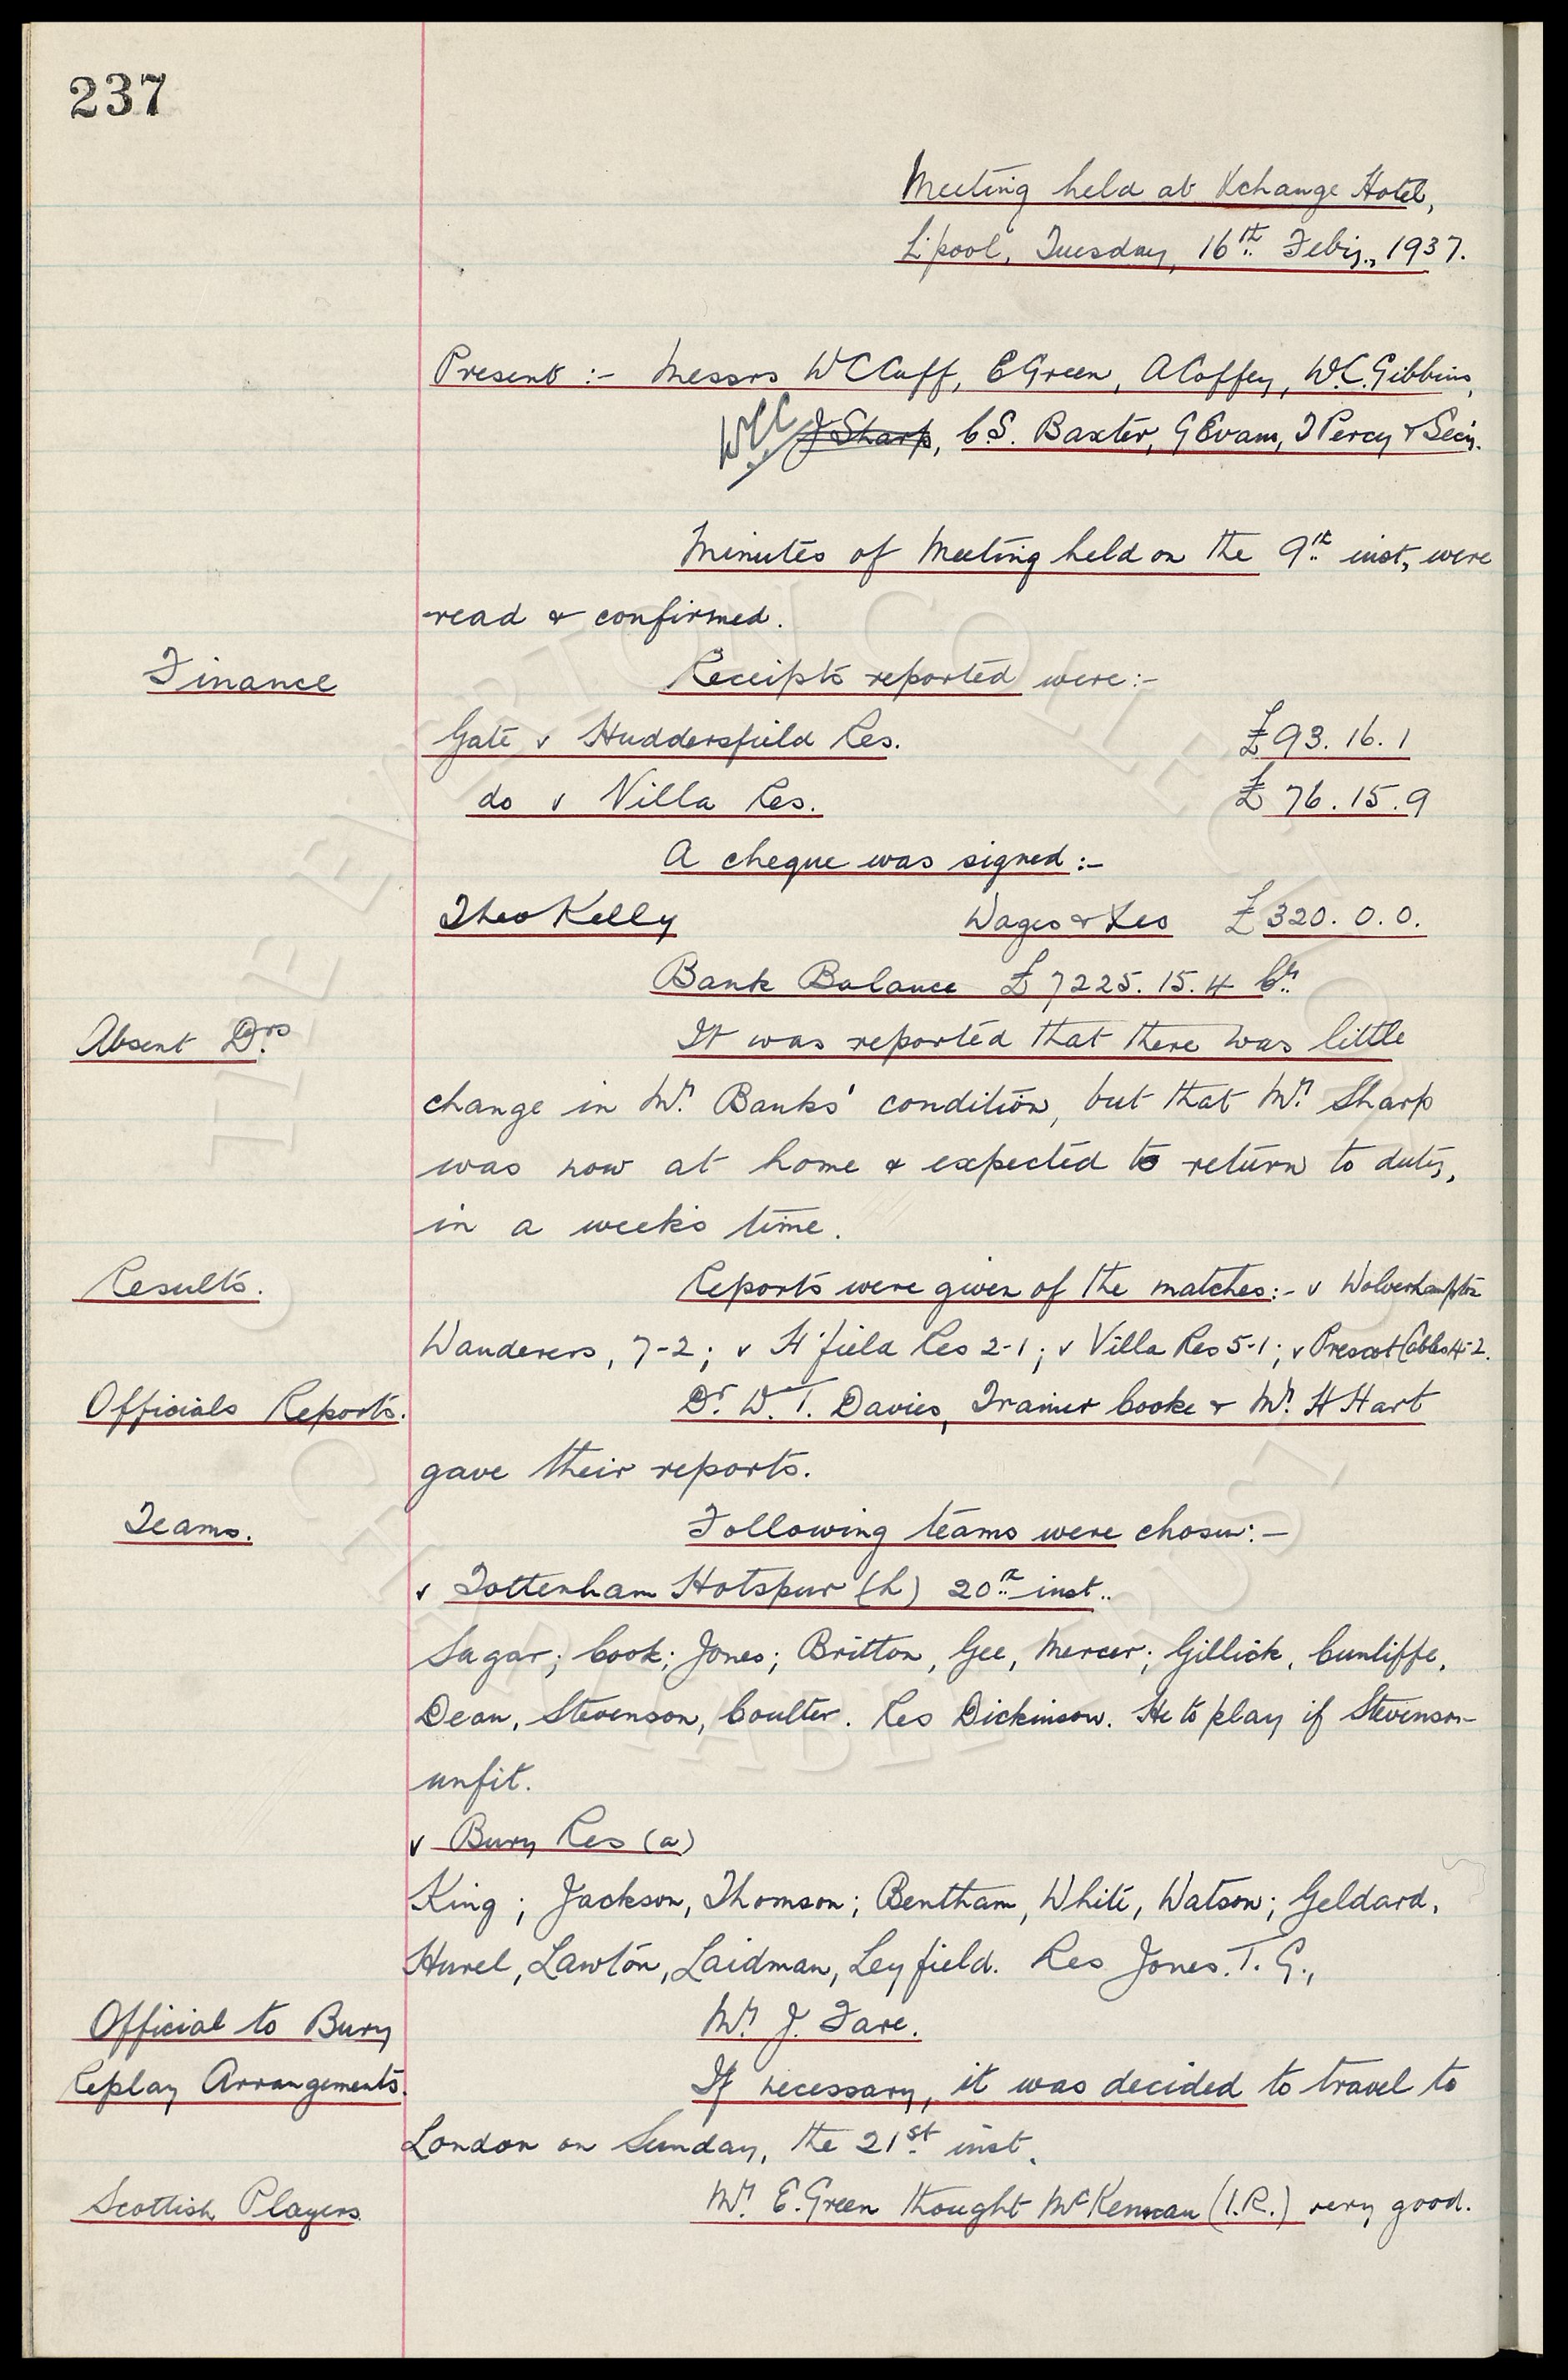 237
Meeting held at Xchange Hotel,
L'pool, Tuesday, 16th Feby., 1937.
Present :- Messrs W C Cuff, E Green, A Coffey, W.C. Gibbins,
WCC J Sharp, C.S. Baxter, G Evans, T Percy & Secy.
Minutes of Meeting held on the 9th inst, were
read & confirmed.
Finance Receipts reported were:-
Gate v Huddersfield Res. £93.16.1
do v Villa Res. £76.15.9
A cheque was signed:-
Theo Kelly Wages & £320.0.0.
Bank Balance £7225.15.4 Cr.
Absent Drs It was reported that there was little
change in Mr. Banks' condition, but that Mr. Sharp
was now at home & expected to return to duty,
in a week's time.
Results. Reports were given of the matches:- v Wolverhampton
Wanderers, 7-2; v H'field Res 2-1; v Villa Res 5-1; v Prescot Cables 4-2.
Officials Reports. Dr. W.T. Davies, Trainer Cooke & Mr. H Hart
gave their reports.
Teams. Following teams were chosen:-
v Tottenham Hotspur (h) 20th inst..
Sagar; Cook; Jones; Britton, Gee, Mercer; Gillick, Cunliffe,
Dean, Stevenson, Coulter. Res Dickinson. He to play if Stevenson
unfit.
v Bury Res (a)
King; Jackson, Thomson; Bentham, White, Watson; Geldard,
Hurel, Lawton, Laidman, Leyfield. Res Jones. T. G.,
Official to Bury Mr. J. Fare.
Replay Arrangements. If necessary, it was decided to travel to
London on Sunday, the 21st inst.
Scottish Players. Mr. E. Green thought McKennan (I.R.) very good.